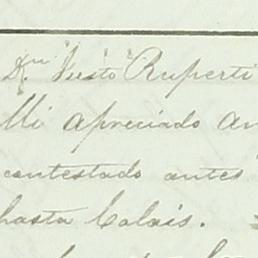 Dn Justo Ruperti
Mi apreciado
contestado antes
hasta Calais.